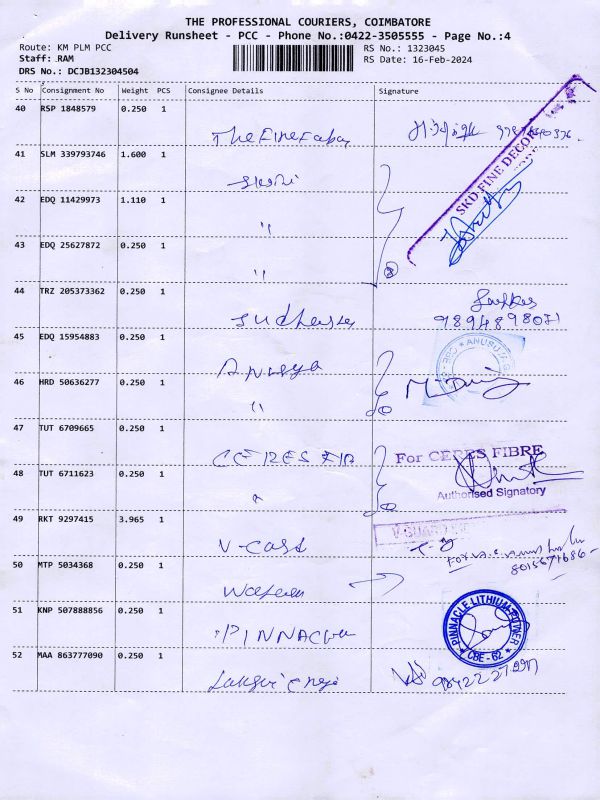 THE PROFESSIONAL COURIERS, COIMBATORE
Delivery Runsheet - PCC - Phone No.:0422-3505555 - Page No.:4
Route: KM PLM PCC RS No.: 1323045
Staff: RAM RS Date: 16-Feb-2024
DRS No.: DCJB132304504
S No Consignment No Weight PCS Consignee Details Signature
40 RSP 1848579 0.250 1
41 SLM 339793746 1.600 1
SKD FINE DECOR
42 EDQ 11429973 1.110 1
"
43 EDQ 25627872 0.250 1
"
44 TRZ 205373362 0.250 1
45 EDQ 15954883 0.250 1
46 HRD 50636277 0.250 1
"
47 TUT 6709665 0.250 1
For CERES FIBRE
48 TUT 6711623 0.250 1
Authorised Signatory
49 RKT 9297415 3.965 1
V-Cast
50 MTP 5034368 0.250 1
51 KNP 507888856 0.250 1
PINNACLE LITHIUM POWER
* CBE - 62 *
52 MAA 863777090 0.250 1